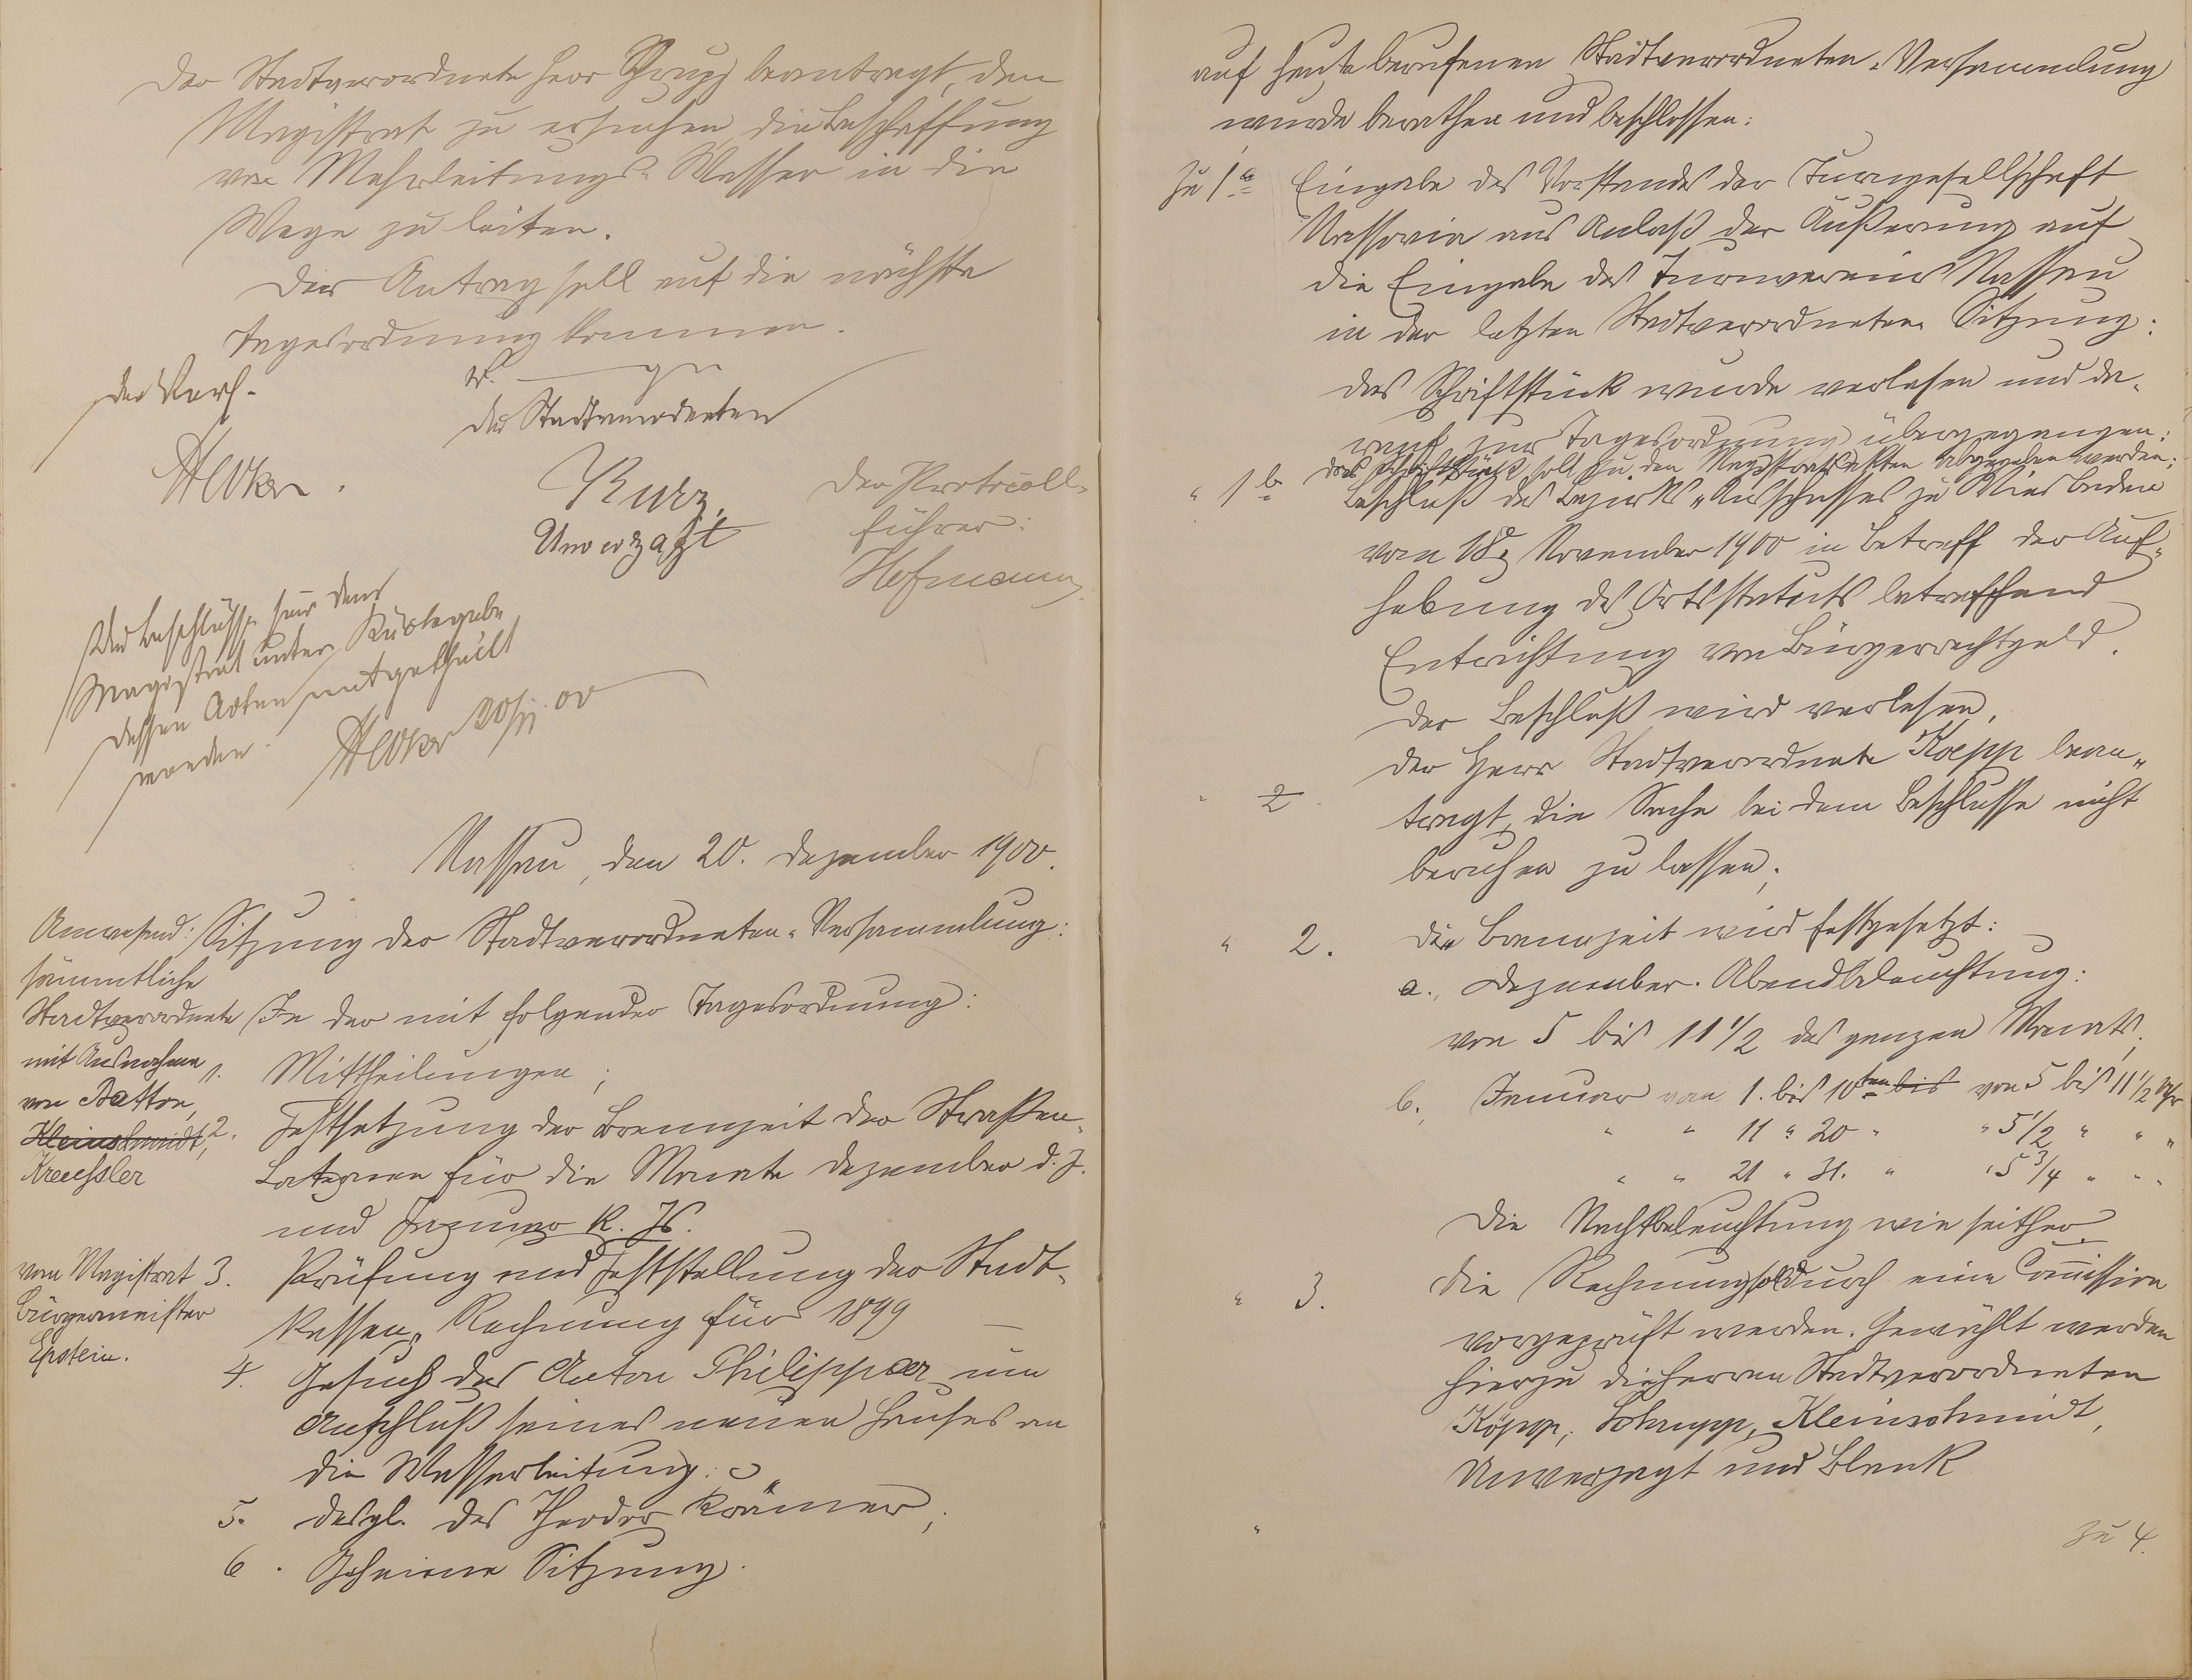 Der Stadtverordnete Herr Schrupp beantragt, den
Magistrat zu ersuchen, die Beschaffung
von Mehrleitungs-Wasser in die
Wege zu leiten.
Der Antrag soll auf die nächste
Tagesordnung kommen.
Der Vors.
v. g. u.
Die Stadtverordneten
Kurz,
Unverzagt
Der Protocoll-
führer:
Hofmann
Die Beschlüsse sind dem
Magistrat unter Rückgabe
dessen Akten mitgetheilt
worden.
Nassau, den 20. Dezember 1900.
Anwesend:
sämmtliche
Stadtverordnete
mit Ausnahme
von Batton,
Kleinschmidt,
Kreussler
vom Magistrat
Bürgermeister
Epstein.
Sitzung der Stadtverordneten-Versammlung:
In der mit folgender Tagesordnung:
1. Mittheilungen;
2. Festsetzung der Brennzeit der Straßen-
Laternen für die Monate Dezember d. J.
und Januar k. Js.
3. Prüfung und Feststellung der Stadt-
kassen-Rechnung für 1899
4. Gesuch des Anton Philippar um
Anschluß seines neuen Hauses an
die Wasserleitung.
5. desgl. des Theodor Krämer;
6. Geheime Sitzung.
auf heute berufenen Stadtverordneten-Versammlung
wurde berathen und beschlossen:
Zu 1a Eingabe des Vorstandes der Turngesellschaft
Nassovia aus Anlaß der Äußerung auf
die Eingabe des Turnvereins Nassau
in der letzten Stadtverordneten Sitzung:
das Schriftstück wurde verlesen und da-
rauf zur Tagesordnung übergegangen;
das Schriftstück soll zu den Magistratsakten abgegeben werden;
" 1b Beschluß des Bezirks-Ausschusses zu Wiesbaden
vom 18. November 1900 in Betreff der Auf-
hebung des Ortsstatuts betreffend
Entrichtung von Bürgerrechtsgeld.
Der Beschluß wird verlesen.
Der Herr Stadtverordnete Koepp bean-
" 2 tragt, die Sache bei dem Beschlusse nicht
beruhen zu lassen;
" 2. Die Brennzeit wird festgesetzt:
a. Dezember. Abendbeleuchtung:
von 5 bis 11 1/2 des ganzen Monats,
b. Januar vom 1. bis 10ten bis von 5 bis 11 1/2 Uhr
" " 11 " 20 " " 5 1/2 " " "
" " 21 " 31. " " 5 3/4 " " "
Die Nachtbeleuchtung wie seither.
" 3. Die Rechnung soll durch eine Commission
vorgeprüft werden. Gewählt werden
hierzu die Herren Stadtverordneten
Köpp, Schrupp, Kleinschmidt,
Unverzagt und Blank
"
zu 4.